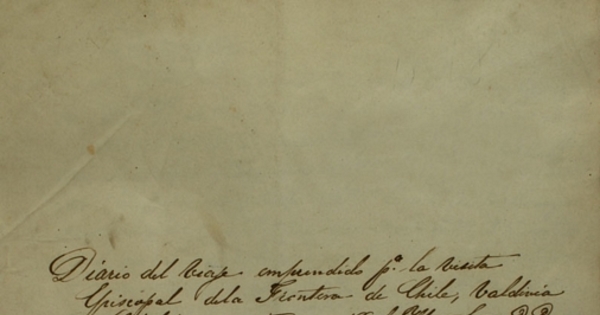 Diario del viaje emprendido pª. la visita
Episcopal dela Frontera de Chile, Valdivia